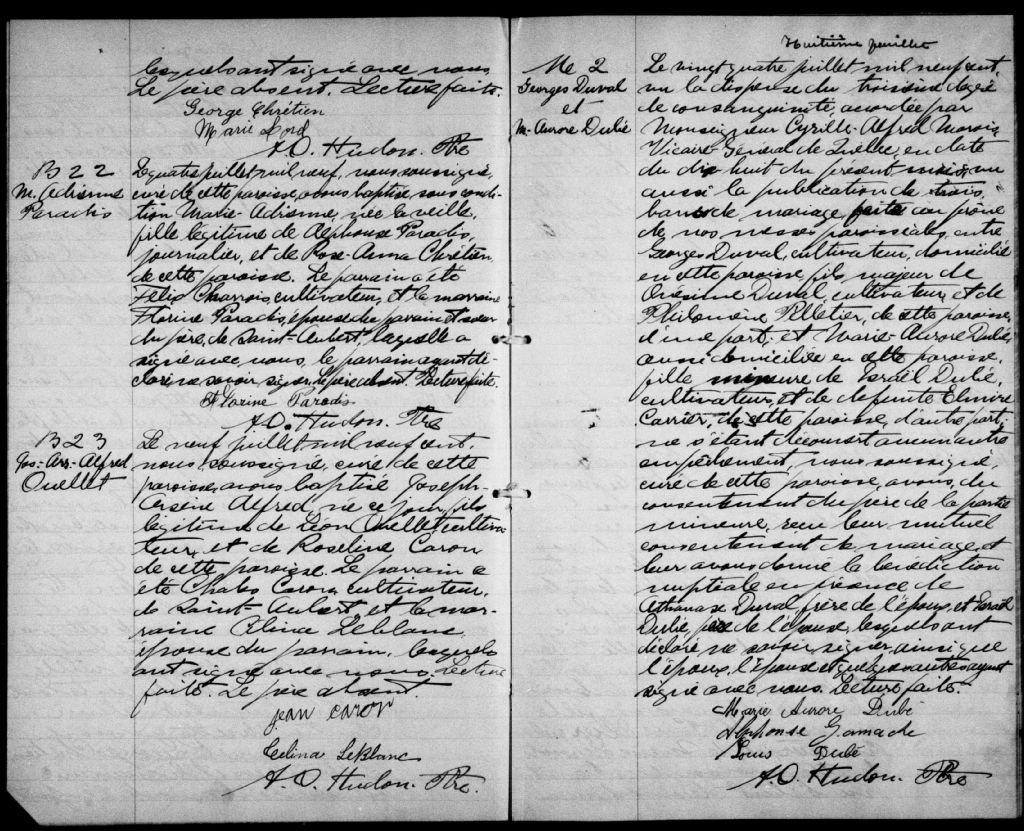 lesquels ont signé avec nous.
Le père absent. Lecture faite.
George Chrétien
Marie Lord
A. O. Hudon. Ptre
B 22
M. Adrienne
Paradis
Le quatre juillet mil neuf, nous soussigné,
curé de cette paroisse, avons baptisé sous condi-
tion Marie-Adrienne, née la veille,
fille légitime de Alphonse Paradis,
journalier, et de Rose-Anna Chrétien
de cette paroisse. Le parrain a été
Félix Charrois, cultivateur, et la marraine
Florine Paradis, épouse du parrain et soeur
du père, de Saint-Aubert, laquelle a
signé avec nous, le parrain ayant dé-
claré ne savoir signer. Le père absent. Lecture faite.
Florine Paradis
A. O. Hudon. Ptre
B 23
Jos-Ars-Alfred
Ouellet
Le neuf juillet mil neuf cent
nous soussigné, curé de cette
paroisse, avons baptisé Joseph-
Arsène Alfred, né ce jour, fils
légitime de Léon Ouellet, cultiva-
teur, et de Roseline Caron
de cette paroisse. Le parrain a
été Charles Caron cultivateur,
de Saint-Aubert, et la mar-
raine Célina Leblanc,
épouse du parrain, lesquels
ont signé avec nous. Lecture
faite. Le père absent
jean caron
Celina LeBlanc
A. O. Hudon. Ptre.
Huitième feuillet
M 2
Georges Duval
et
M-Aurore Dubé
Le vingt quatre juillet mil neuf cent,
vu la dispense du troisième degré
de consanguinité, accordée par
Monseigneur Cyrille-Alfred Marois
Vicaire-Général de Québec, en date
du dix huit du présent mois; vu
aussi la publication de trois
bans de mariage faite au prône
de nos messes paroissiales, entre
Georges Duval, cultivateur, domicilié
en cette paroisse, fils majeur de
Onésime Duval, cultivateur, et de
Philomène Pelletier, de cette paroisse,
d'une part; et Marie-Aurore Dubé,
aussi domiciliée en cette paroisse,
fille mineure de Israël Dubé,
cultivateur, et de défunte Elmire
Carrier, de cette paroisse, d'autre part;
ne s'étant découvert aucun autre
empêchement, nous soussigné,
curé de cette paroisse, avons, du
consentement du père de la partie
mineure, reçu leur mutuel
consentement de mariage, et
leur avons donné la bénédiction
nuptiale en présence de
Athanase Duval, frère de l'époux, et Israël
Dubé, père de l'épouse, lesquels ont
déclaré ne savoir signer, ainsi que
l'époux. L'épouse et quelques autres ayant
signé avec nous. Lecture faite.
Marie Aurore Dubé
Alphonse Gamache
Louis Dubé
A. O. Hudon. Ptre